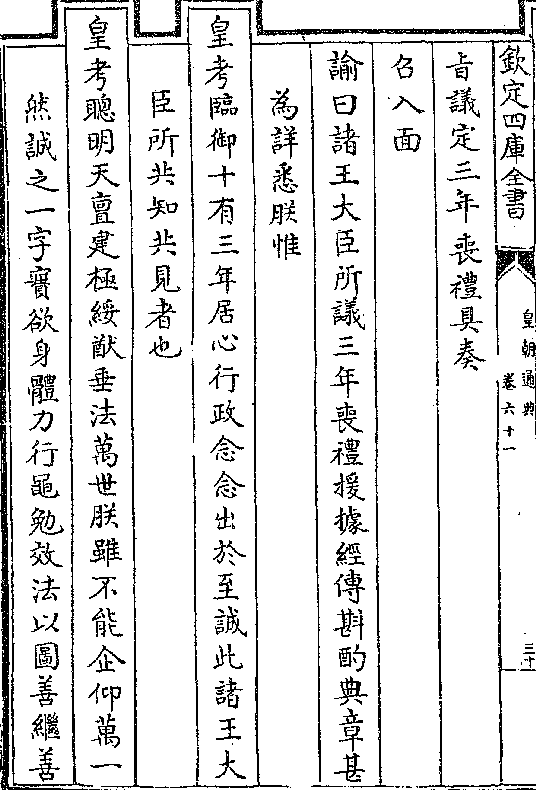 欽定四庫全書
皇朝通典
卷六十一
三十
旨議定三年喪禮具奏
召入面
諭曰諸王大臣所議三年喪禮援據經傳斟酌典章甚
為詳悉朕惟
皇考臨御十有三年居心行政念念出於至誠此諸王大
臣所共知共見者也
皇考聰明天亶建極綏猷垂法萬世朕雖不能企仰萬一
然誠之一字實欲身體力行黽勉效法以圖善繼善